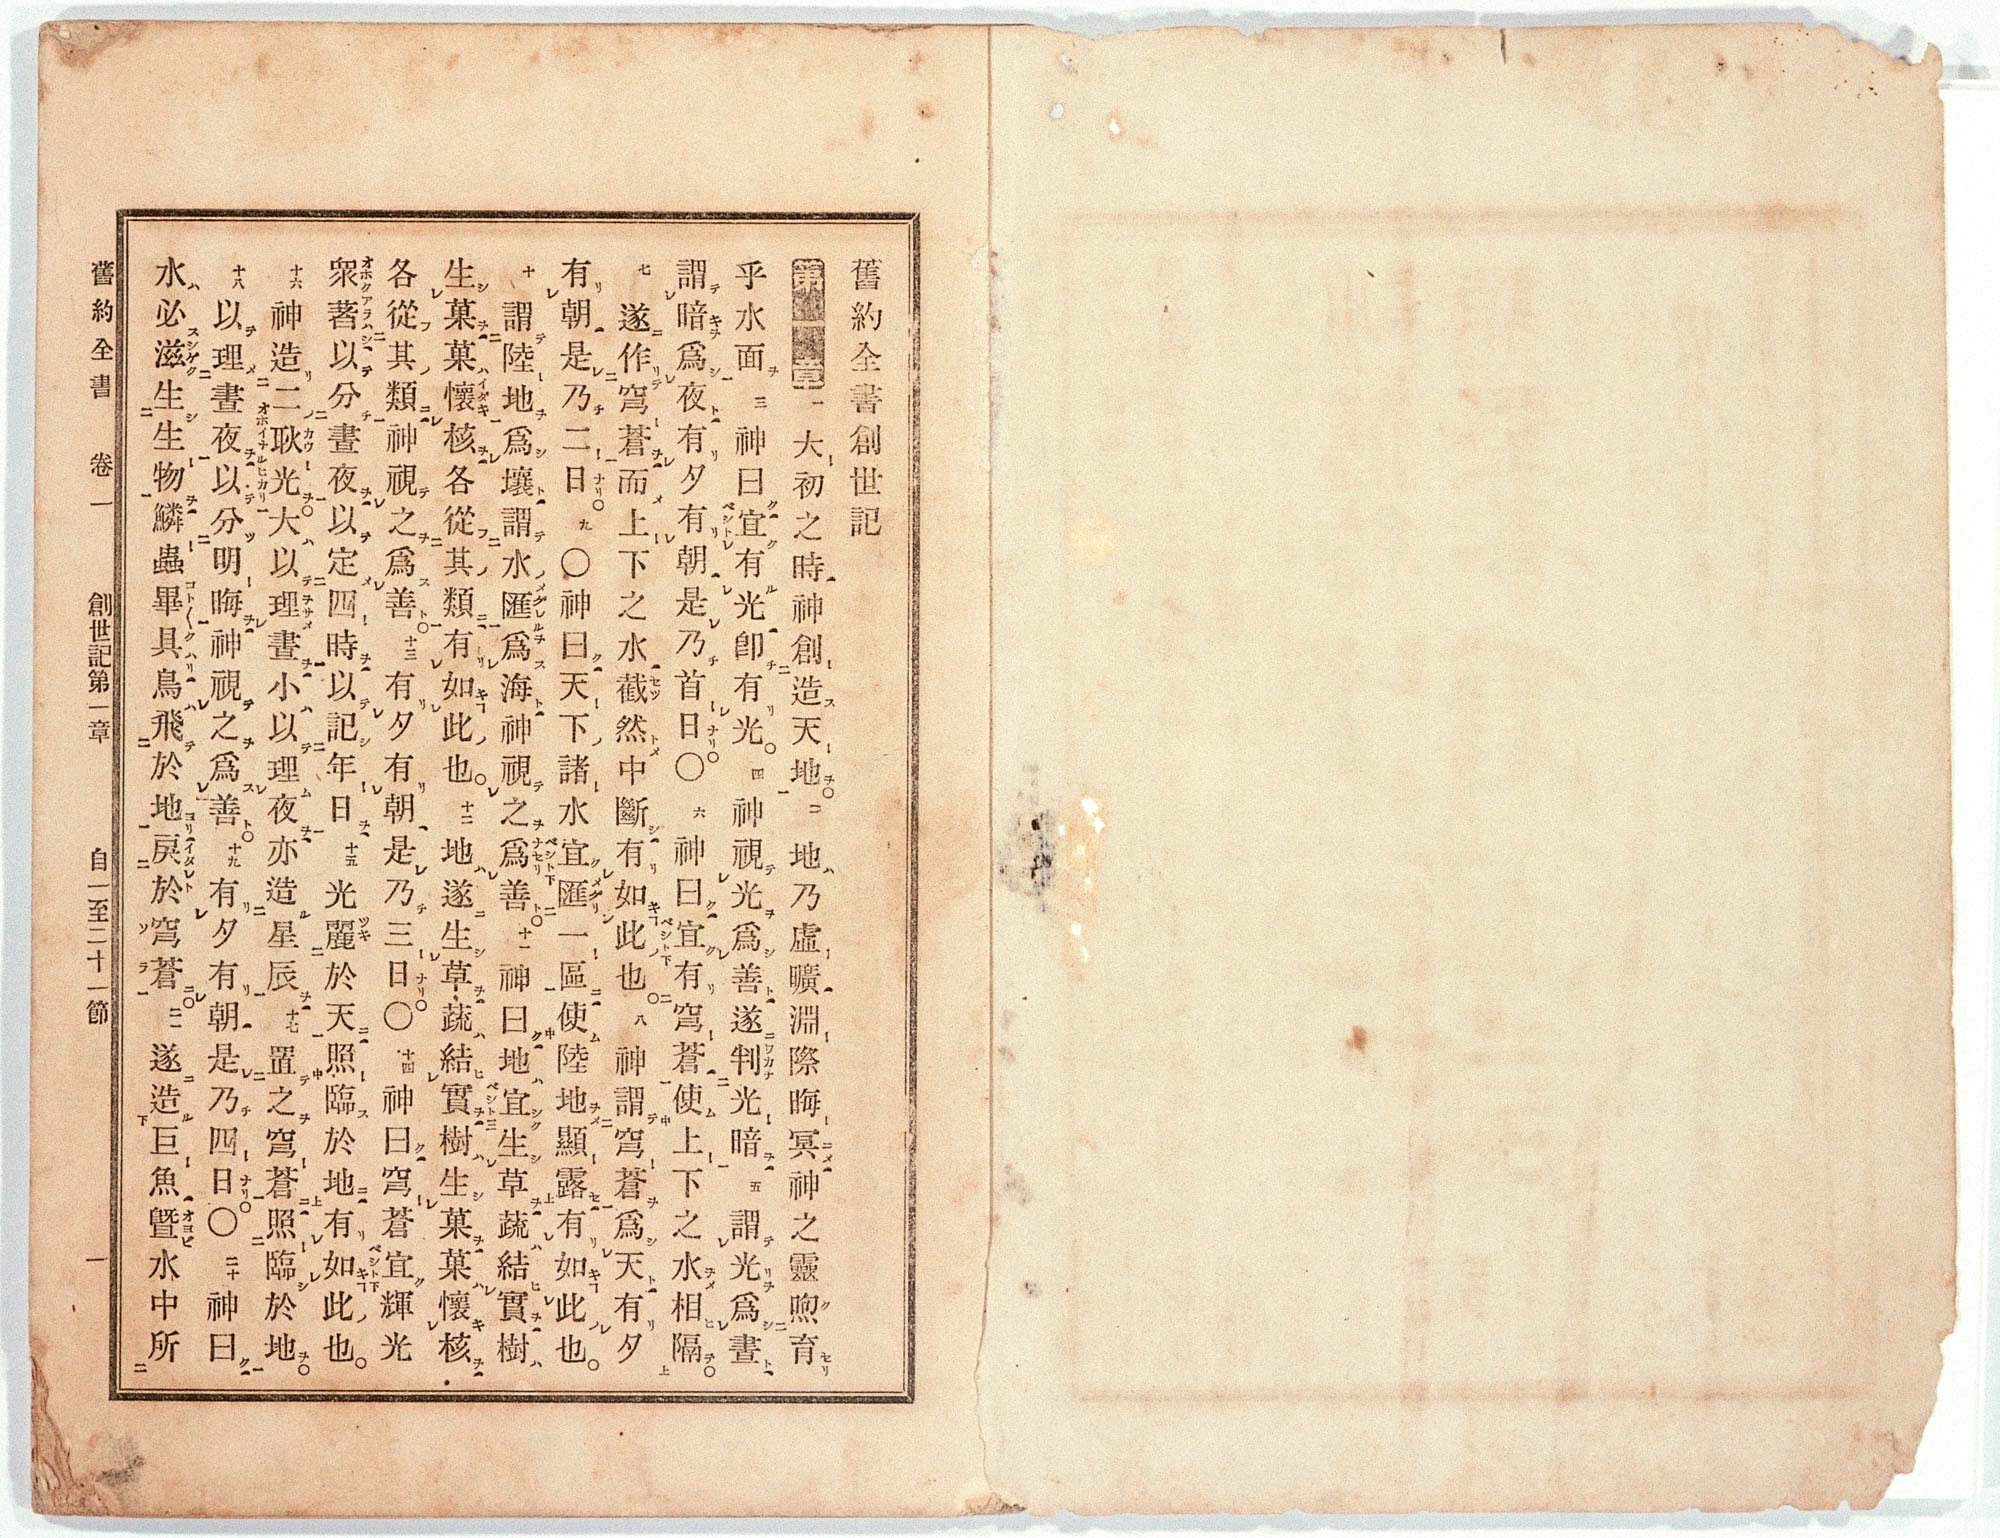 舊約全書創世記
第一章 一 大初之時神創造天地。二 地乃虛曠淵際晦冥神之靈煦育
乎水面 三 神曰宜有光卽有光。四 神視光爲善遂判光暗 五 謂光爲晝
謂暗爲夜有夕有朝是乃首日。〇 六 神曰宜有穹蒼使上下之水相隔。
七 遂作穹蒼而上下之水截然中斷有如此也。八 神謂穹蒼爲天有夕
有朝是乃二日。九 〇神曰天下諸水宜匯一區使陸地顯露有如此也。
十 謂陸地爲壤謂水匯爲海神視之爲善。十一 神曰地宜生草蔬結實樹
生菓菓懷核各從其類有如此也。十二 地遂生草蔬結實樹生菓菓懷核
各從其類神視之爲善。十三 有夕有朝是乃三日。〇 十四 神曰穹蒼宜輝光
衆著以分晝夜以定四時以記年日 十五 光麗於天照臨於地有如此也。
十六 神造二耿光。大以理晝小以理夜亦造星辰 十七 置之穹蒼照臨於地。
十八 以理晝夜以分明晦神視之爲善。十九 有夕有朝是乃四日。〇 二十 神曰
水必滋生生物鱗蟲畢具鳥飛於地戾於穹蒼。二一 遂造巨魚曁水中所
舊約全書 卷一 創世記第一章 自一至二十一節 一